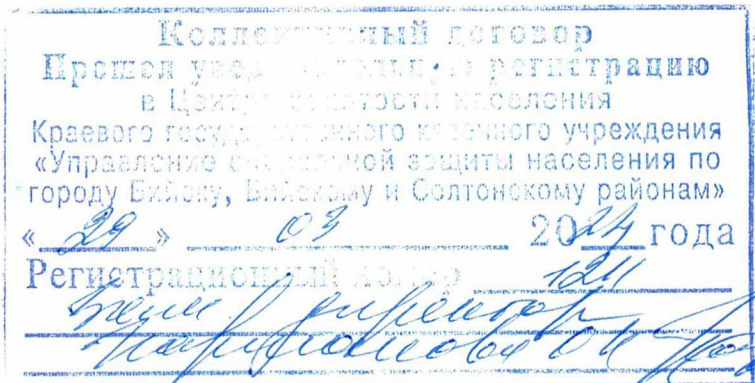 Коллективный договор
Прошел уведомительную регистрацию
в Центре занятости населения
Краевого государственного казенного учреждения
«Управление социальной защиты населения по
городу Бийску, Бийскому и Солтонскому районам»
« 29 » 03 2024 года
Регистрационный номер 1211
директор